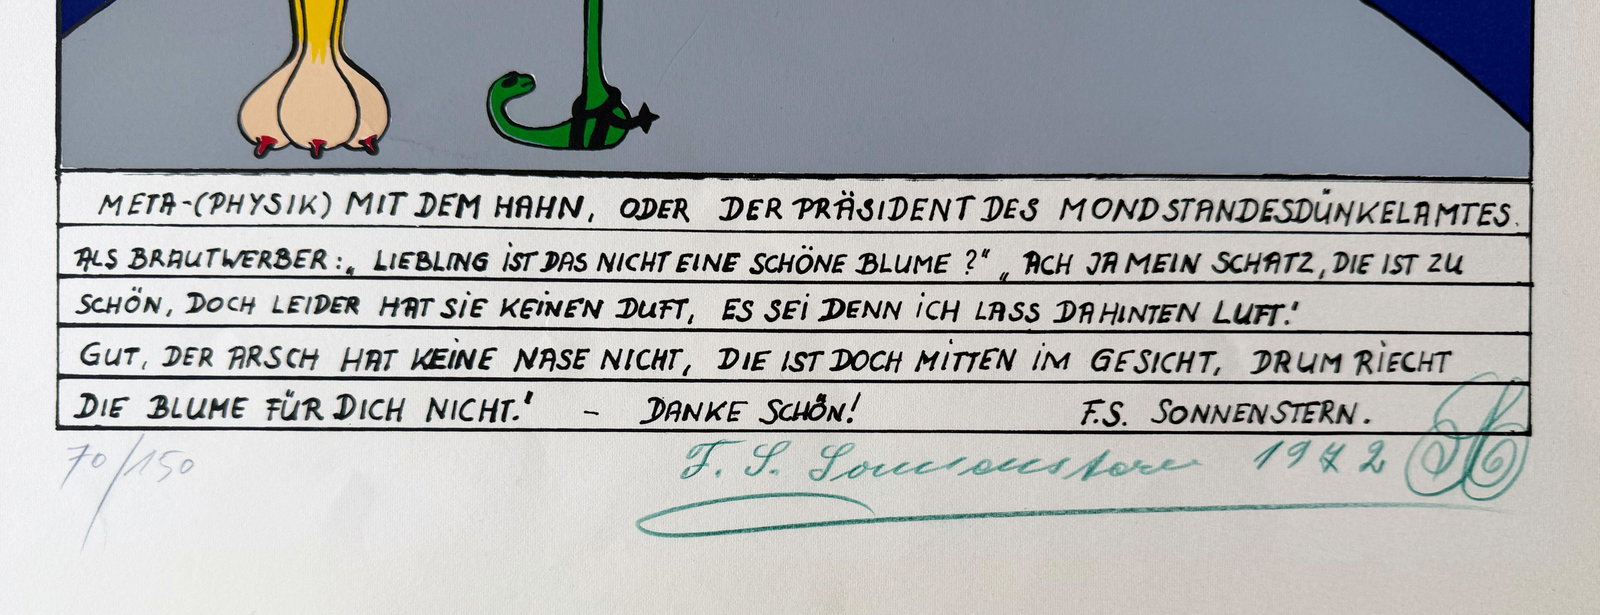 META-(PHYSIK) MIT DEM HAHN, ODER DER PRÄSIDENT DES MONDSTANDESDÜNKELAMTES.
ALS BRAUTWERBER: „ LIEBLING iST DAS NICHT EINE SCHÖNE BLUME ?“ „ ACH JA MEIN SCHATZ, DIE IST ZU
SCHÖN, DOCH LEIDER HAT SIE KEiNEN DUFT, ES SEi DENN iCH LASS DAHINTEN LUFT.'
GUT, DER ARSCH HAT KEiNE NASE NICHT, DIE IST DOCH MITTEN iM GESICHT, DRUM RiECHT
DIE BLUME FÜR DICH NICHT.' – DANKE SCHÖN! F.S. SONNENSTERN.
70/150 F. S. Sonnenstern 1972